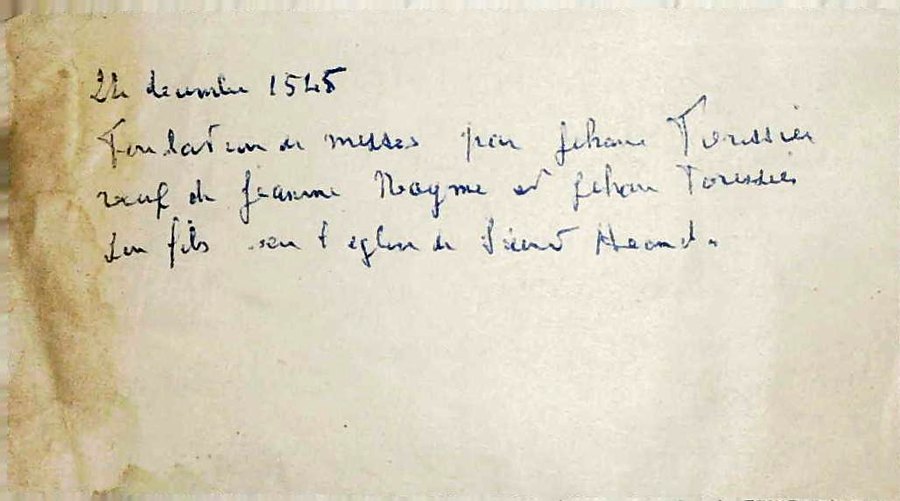 24 decembre 1545
Fondation de messes par Jehan Toressier
veuf de Jeanne Noyme et Jehan Toressier
son fils en l'eglise de